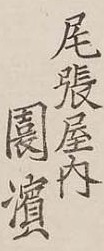 尾張屋内
園濱